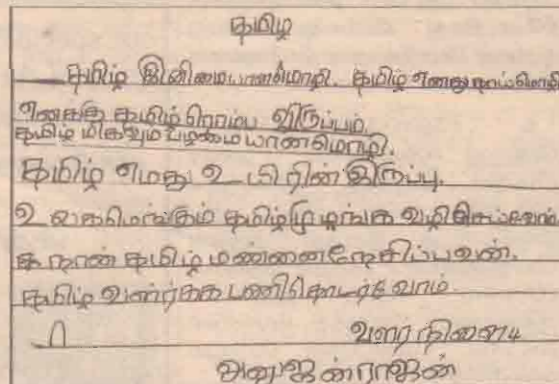 தமிழ்
தமிழ் இனிமையானமொழி. தமிழ் எனது தாய்மொழி
எனக்கு தமிழ் ரொம்ப விருப்பம்.
தமிழ் மிகவும் பழமையானமொழி.
தமிழ் எமது உயிரின் இருப்பு.
உலகமெங்கும் தமிழ் முழங்க வழிசெய்வோம்
நான் தமிழ் மண்ணை நேசிப்பவன்.
தமிழ் வளர்க்க பணிதொடர்வோம்
வளர்நிலை 4
அனுஜன்ராஜன்